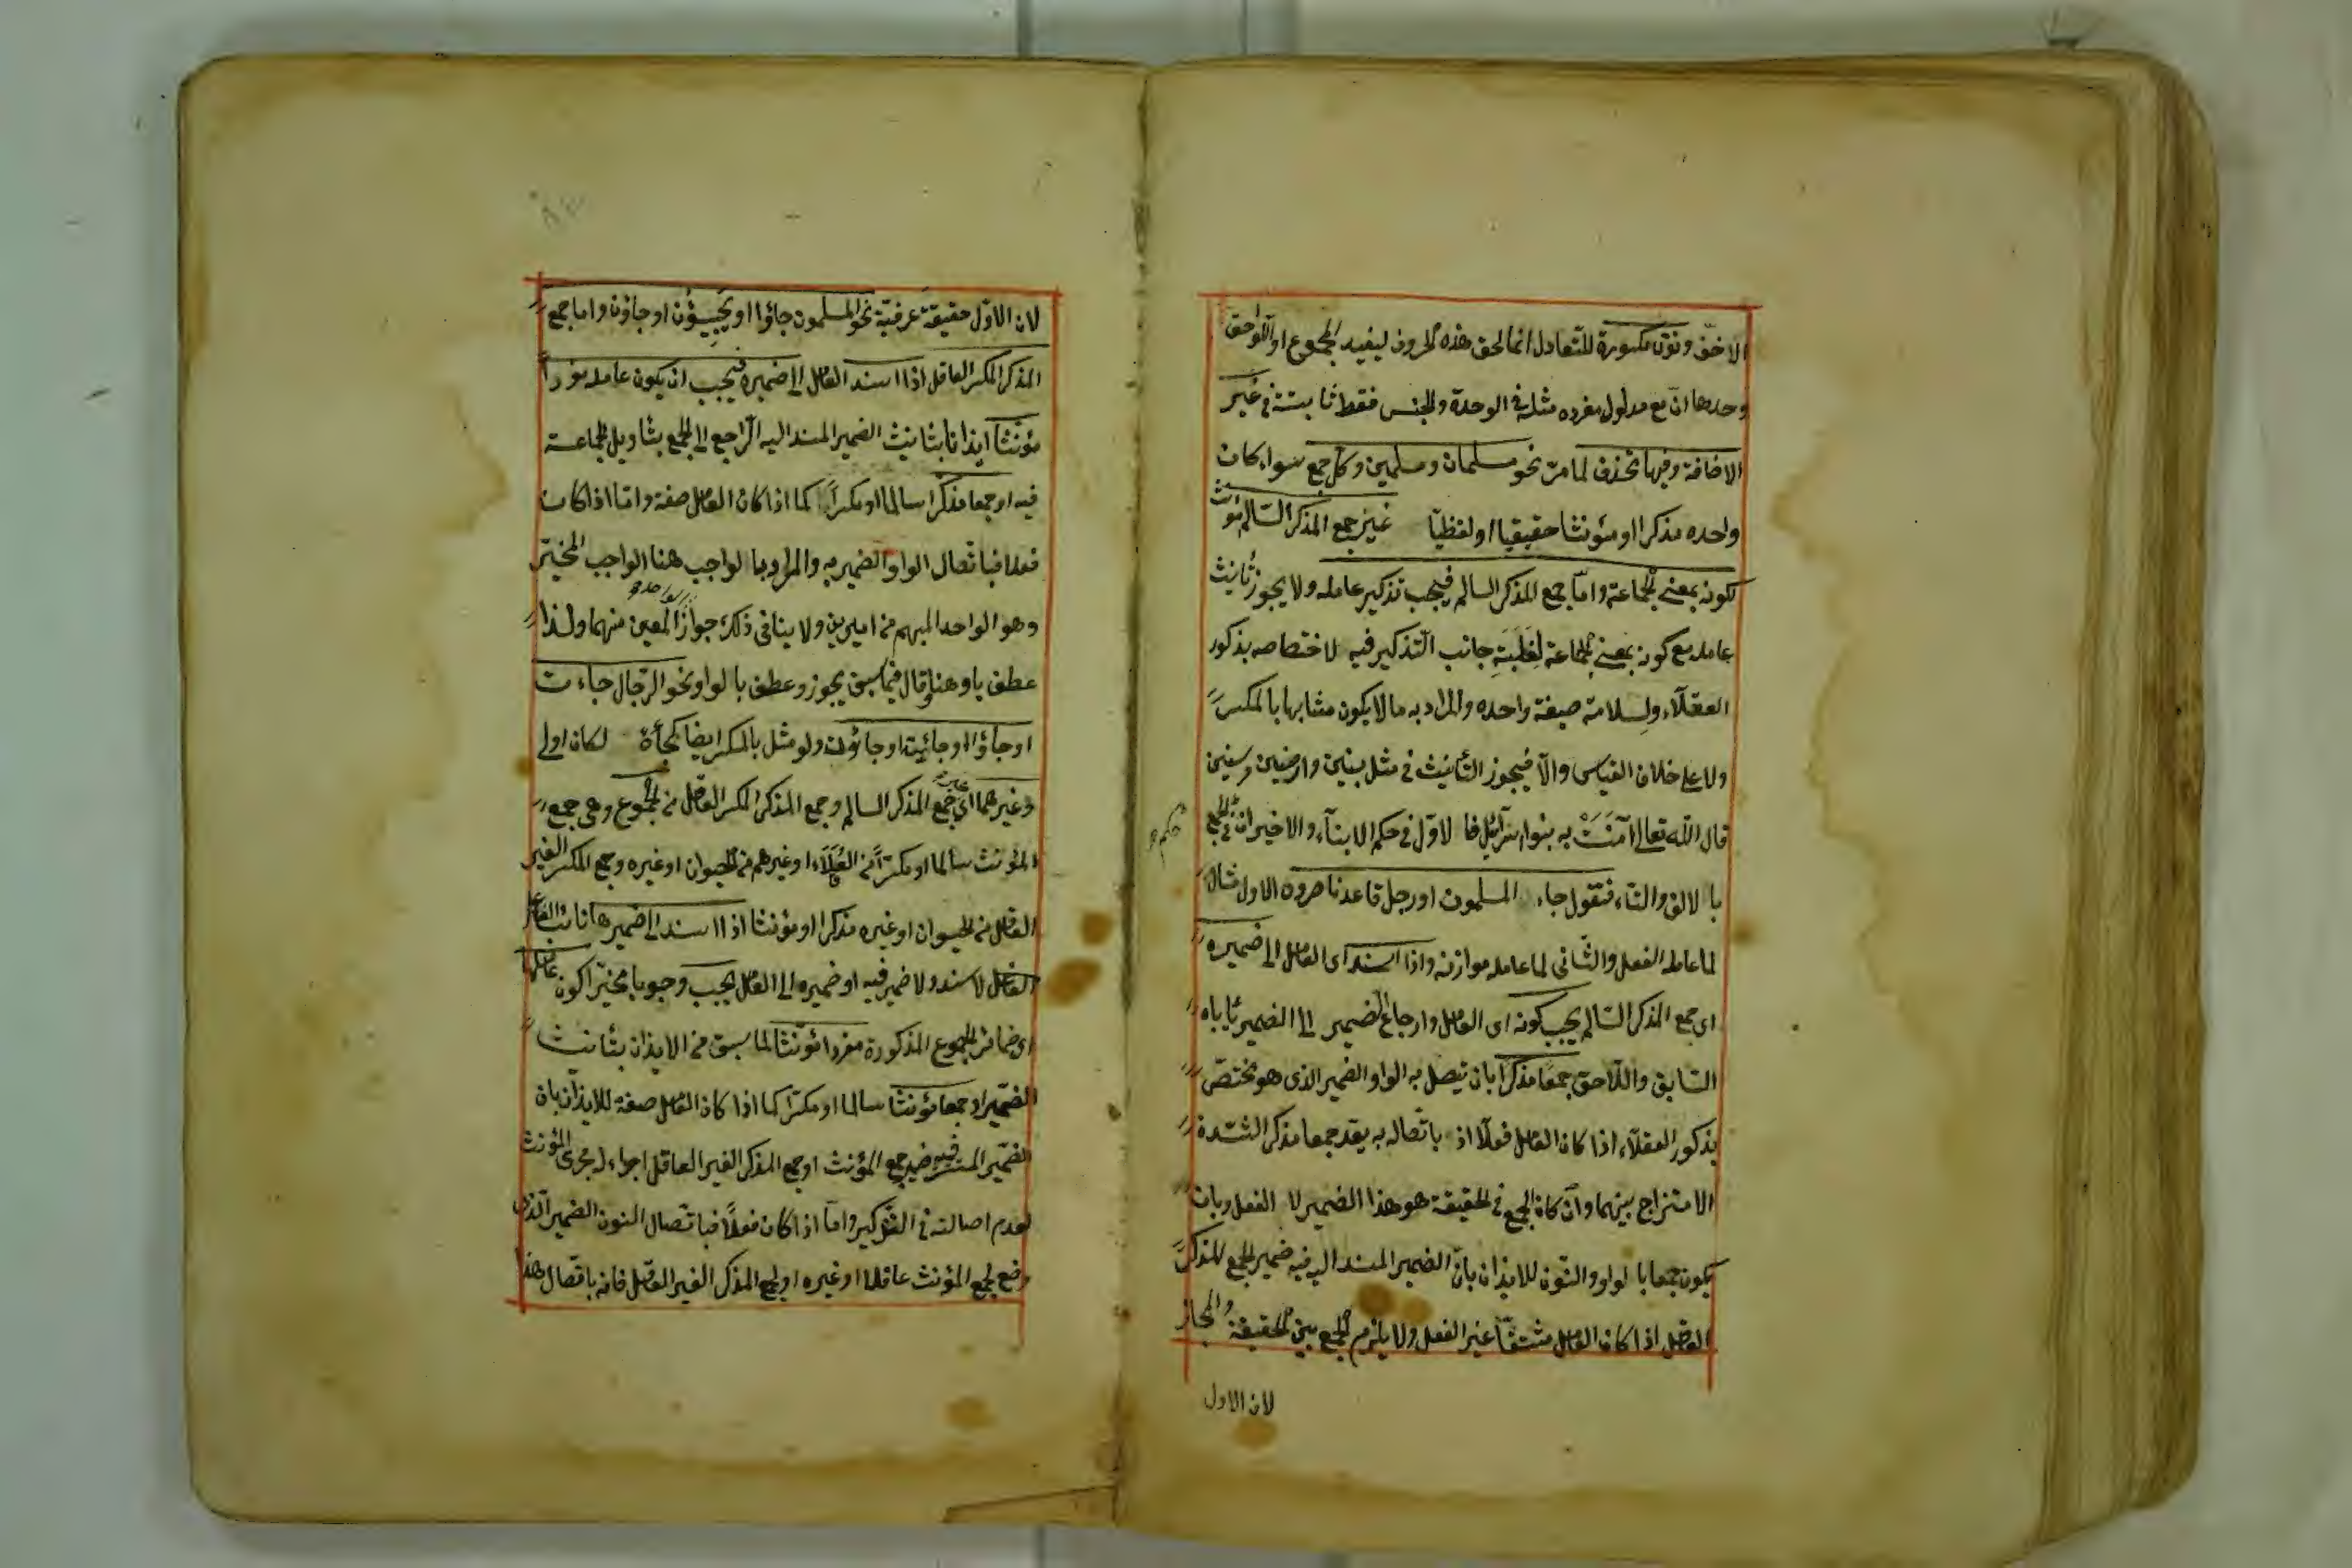 الاخف ونون مكسورة للتعادل انما لحق هذه الحروف ليفيد المجموع او اللواحق
وحدها ان مع مدلول مفرده مثله في الوحدة والجنس فقط ثابتة في غير
الاضافة وفيها تحذف لما مر نحو مسلمان ومسلمين وكل جمع سواء كان
واحده مذكرا او مؤنثا حقيقيا او لفظيا غير جمع المذكر السالم مؤنث
لكونه بمعنى الجماعة واما جمع المذكر السالم فيجب تذكير عامله ولا يجوز تانيث
عامله مع كونه بمعنى الجماعة لغلبة جانب التذكير فيه لاختصاصه بذكور
العقلاء ولسلامة صيغة واحده والمراد به ما لا يكون مشابها بالمكسر
ولا على خلاف القياس والا فيجوز التأنيث في مثل بنين وارضين وسنين
قال الله تعالى آمنت به بنوا اسرائيل فالاول في حكم الابناء والاخيران في حكم الجمع
بالالف والتاء فتقول جاء المسلمون او رجل قاعد ناصروه الاول مثال
لما عامله الفعل والثاني لما عامله موازنه واذا اسند اى العامل الى ضميره
اى جمع المذكر السالم يجب كونه اى العامل وارجاع الضمير الى الضمير يأباه
السابق واللاحق جمعا مذكرا بان يتصل به الواو الضمير الذى هو مختص
بذكور العقلاء اذا كان العامل فعلا اذ باتصاله به يعد جمعا مذكرا لشدة
الامتزاج بينهما وان كان الجمع في الحقيقة هو هذا الضمير لا الفعل وبان
يكون جمعا بالواو والنون للايذان بان الضمير المسند اليه فيه ضمير الجمع المذكر
العاقل اذا كان العامل مشتقا غير الفعل ولا يلزم الجمع بين الحقيقة والمجاز
لان الاول
لان الاول حقيقة عرفية نحو المسلمون جاؤا او يجيئون او جاؤن واما جمع
المذكر المكسر العاقل اذا اسند العامل الى ضميره فيجب ان يكون عامله مفردا
مؤنثا ايذانا بتانيث الضمير المسند اليه الراجع الى الجمع بتأويل الجماعة
فيه او جمعا مذكرا سالما او مكسرا كما اذا كان العامل صفة واما اذا كان
فعلا فباتصال الواو الضمير به والمراد بالواجب هنا الواجب المخير
وهو الواحد المبهم من امرين ولا ينافى ذلك جواز الواحد المعين منهما ولذا
عطف باو هنا وقال فيما سبق يجوز وعطف بالواو نحو الرجال جاءت
او جاؤا او جائية او جاؤن ولو مثل بالمكسر ايضا لكان اولى
وغيرهما اى غير جمع المذكر السالم وجمع المذكر المكسر العاقل من الجموع وهى جمع
المؤنث سالما او مكسرا من العقلاء او غيرهم من الحيوان او غيره وجمع المكسر الغير
العاقل من الحيوان او غيره مذكرا او مؤنثا اذا اسند الى ضميرها نائب الفاعل
العامل لاسند ولا ضمير فيه او ضميره الى العامل يجب وجوبا مخيرا كون عاملها
اى ضمائر الجموع المذكورة مفردا مؤنثا لما سبق من الايذان بتأنيث
الضمير او جمعا مؤنثا سالما او مكسرا كما اذا كان العامل صفة للايذان بان
الضمير المستتر فيه ضمير جمع المؤنث او جمع المذكر الغير العاقل اجراء له مجرى المؤنث
لعدم اصالته في التذكير واما اذا كان فعلا فباتصال النون الضمير الذى
وضع لجمع المؤنث عاقلا او غيره او لجمع المذكر الغير العاقل فانه باتصال هذا